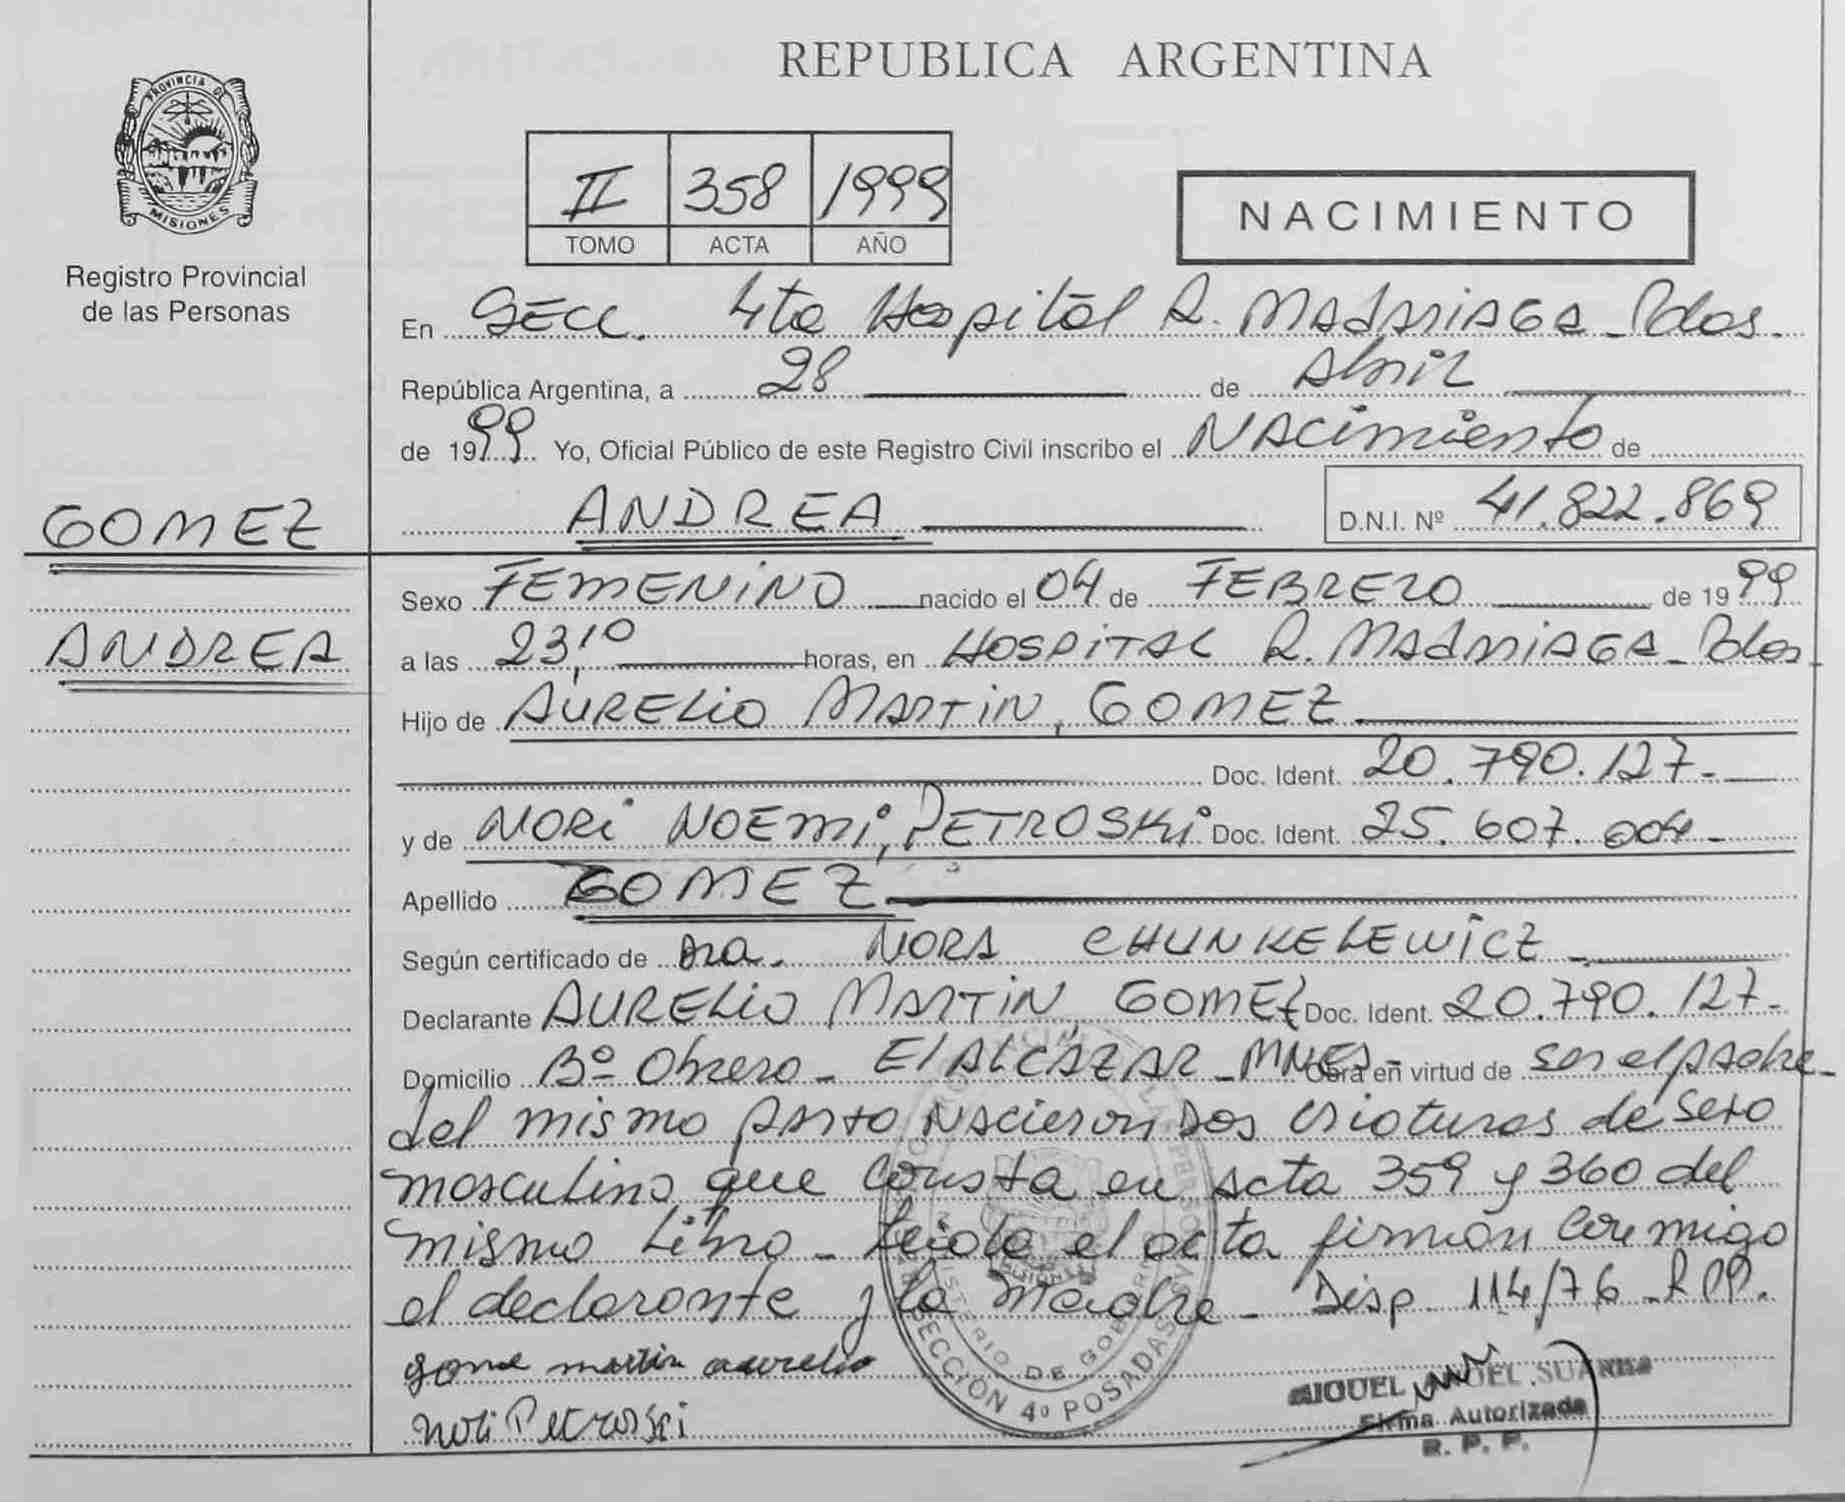 REPUBLICA ARGENTINA
PROVINCIA DE
MISIONES
Registro Provincial
de las Personas
II 358 1999
TOMO ACTA AÑO
NACIMIENTO
En SECC. 4ta Hospital R. MADARIAGA - Pdas.
República Argentina, a 28 de Abril
de 1999 Yo, Oficial Público de este Registro Civil inscribo el NACimiento de
ANDREA D.N.I. Nº 41.822.869
GOMEZ
ANDREA
Sexo FEMENINO nacido el 04 de FEBRERO de 1999
a las 23,10 horas, en HOSPITAL R. MADARIAGA - Pdas.
Hijo de AURELIO MARTIN, GOMEZ
Doc. Ident. 20.790.127.-
y de NORI NOEMI, PETROSKI Doc. Ident. 25.607.004-
Apellido GOMEZ
Según certificado de Dra. NORA CHUNKELEWICZ
Declarante AURELIO MARTIN, GOMEZ Doc. Ident. 20.790.127-
Domicilio Bº Obrero - El ALCÁZAR - MNES - Obra en virtud de ser el padre -
del mismo parto nacieron dos criaturas de sexo
masculino que consta en acta 359 y 360 del
mismo Libro - Leida el acta firman conmigo
el declarante y la Madre - Disp. 114/76 - R.P.P.
gome martin aurelio
MIGUEL ANGEL
Firma Autorizada
R. P. P.
Nori Petroski
MINISTERIO DE GOBIERNO
SECCION 4º POSADAS
MISIONES